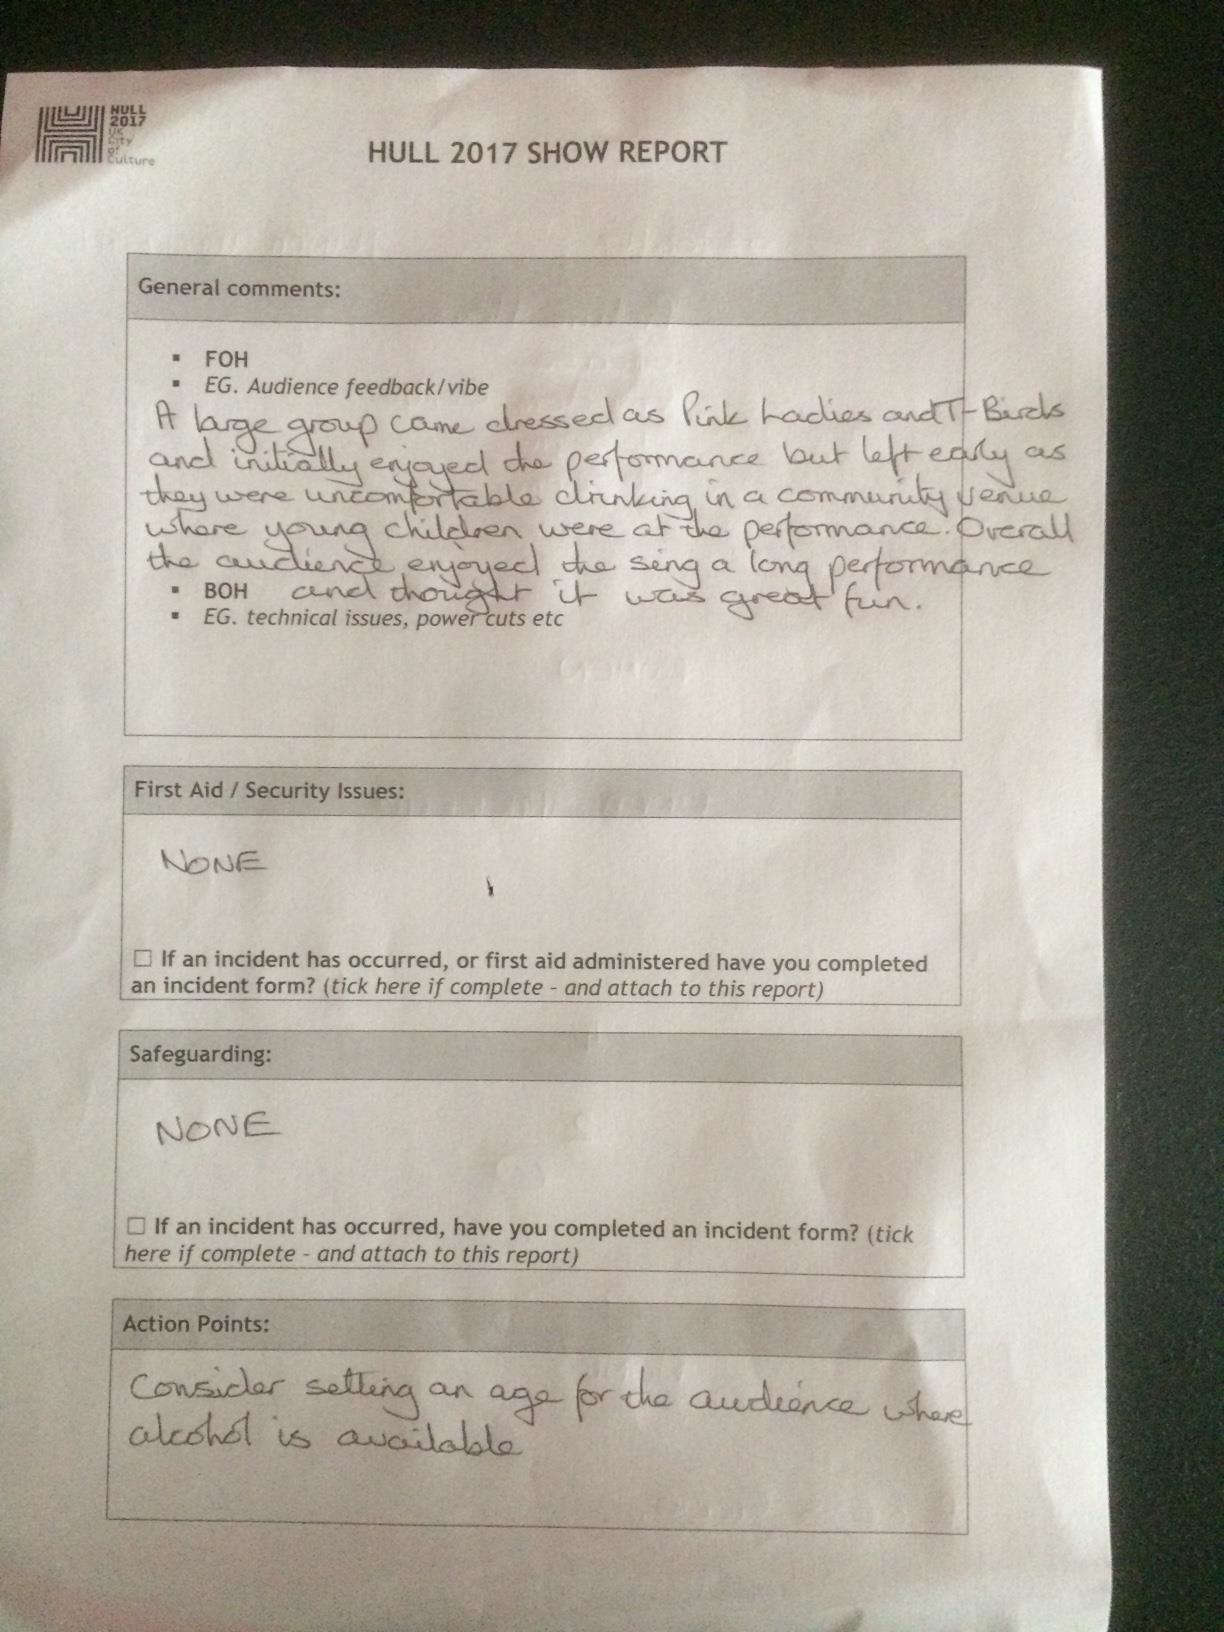 HULL
2017
UK
City
of
Culture
HULL 2017 SHOW REPORT
General comments:
▪ FOH
▪ EG. Audience feedback/vibe
A large group came dressed as Pink Ladies and T-Birds
and initially enjoyed the performance but left early as
they were uncomfortable drinking in a community venue
where young children were at the performance. Overall
the audience enjoyed the sing a long performance
▪ BOH and thought it was great fun.
▪ EG. technical issues, power cuts etc
First Aid / Security Issues:
NONE
☐ If an incident has occurred, or first aid administered have you completed
an incident form? (tick here if complete - and attach to this report)
Safeguarding:
NONE
☐ If an incident has occurred, have you completed an incident form? (tick
here if complete - and attach to this report)
Action Points:
Consider setting an age for the audience where
alcohol is available